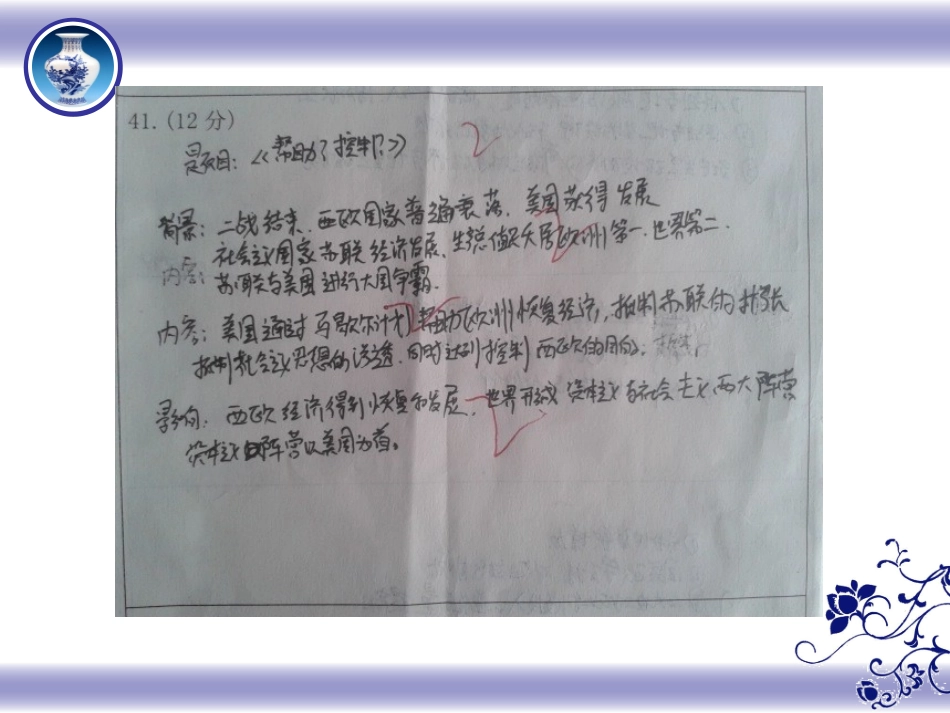 41.(12分)
题目:《帮助?控制?》 2
背景:二战结束.西欧国家普遍衰落.美国获得发展
社会主义国家苏联经济发展.生产总值跃居欧洲第一.世界第二.
内容:苏联与美国进行大国争霸.
内容:美国通过马歇尔计划帮助欧洲恢复经济,抵制苏联的扩张
抵制社会主义思想的渗透.同时达到控制西欧的目的.
影响:西欧经济得到恢复和发展.世界形成资本主义与社会主义两大阵营
资本主义阵营以美国为首。